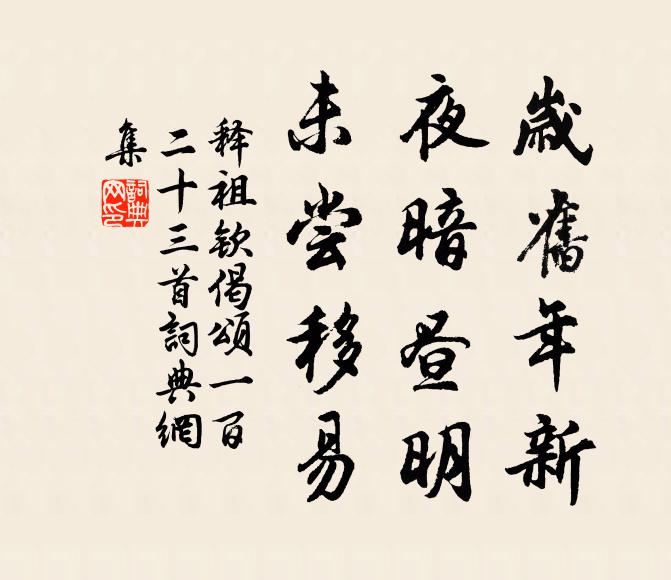 歲舊年新
夜暗昼明
未尝移易
释祖钦偈頌一百
二十三首詞典網
集
詞典
网印